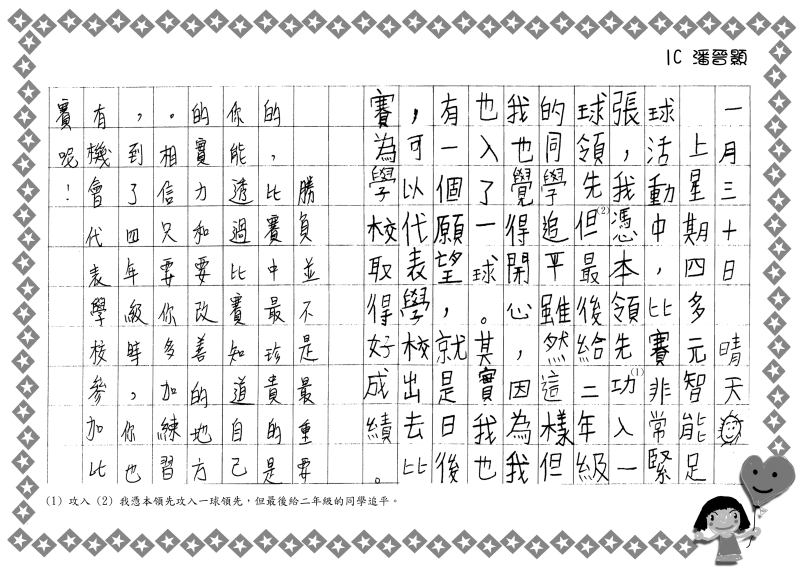 1C 潘晉顥
一月三十日 晴天
上星期四多元智能足
球活動中，比賽非常緊
張，我憑本領先功(1)入一
球領先但(2)最後給二年級
的同學追平雖然這樣但
我也覺得開心，因為我
也入了一球。其實我也
有一個願望，就是日後
，可以代表學校出去比
賽為學校取得好成績。
勝負並不是最重要
的，比賽中最珍貴的是
你能透過比賽知道自己
的實力和要改善的地方
。相信只要你多加練習
，到了四年級時，你也
有機會代表學校參加比
賽呢！
(1) 攻入 (2) 我憑本領先攻入一球領先，但最後給二年級的同學追平。